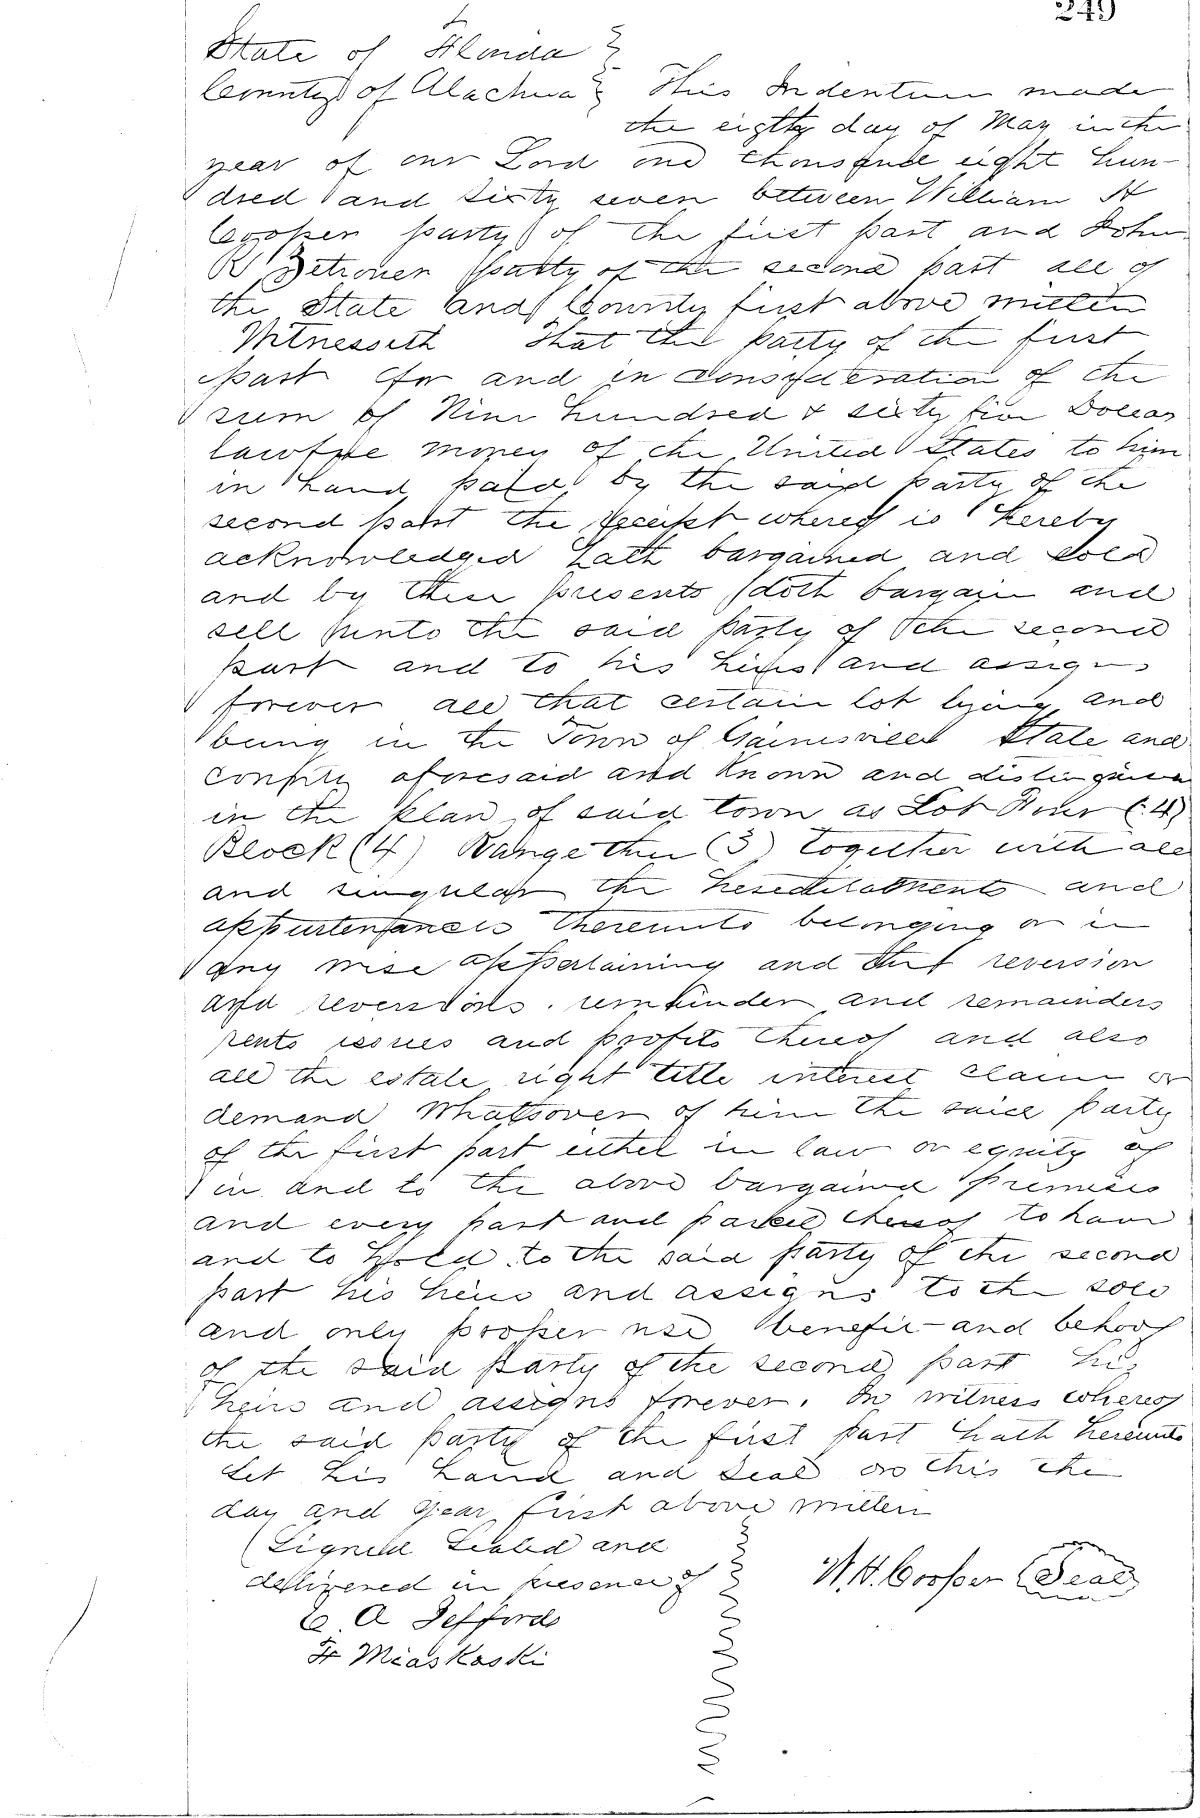 249
State of Florida }
County of Alachua } This Indenture made
the eigtth day of May in the
year of our Lord one thousand eight hun-
dred and sixty seven between William H
Cooper party of the first part and John
R Zetrouer party of the second part all of
the State and County first above written
Witnesseth That the party of the first
part for and in consideration of the
sum of Nine hundred & sixty five Dollars
lawful money of the United States to him
in hand paid by the said party of the
second part the receipt whereof is hereby
acknowledged hath bargained and sold
and by these presents doth bargain and
sell unto the said party of the second
part and to his heirs and assigns
forever all that certain lot lying and
being in the Town of Gainesville State and
county aforesaid and known and distinguished
in the plan of said town as Lot Four (4)
Block (4) Range three (3) together with all
and singular the hereditaments and
appurtenances thereunto belonging or in
any wise appertaining and the reversion
and reversions. remainder and remainders
rents issues and profits thereof and also
all the estate right title interest claim or
demand whatsover of him the said party
of the first part either in law or equity of
in and to the above bargained premises
and every part and parcel thereof to have
and to hold to the said party of the second
part his heirs and assigns to the sole
and only propper use benefit and behoof
of the said party of the second part his
heirs and assigns forever. In witness whereof
the said party of the first part hath hereunto
set his hand and seal on this the
day and year first above written
Signed Sealed and
dellivered in presence of
W. H. Cooper (Seal)
C. A Jeffords
H Miaskoski